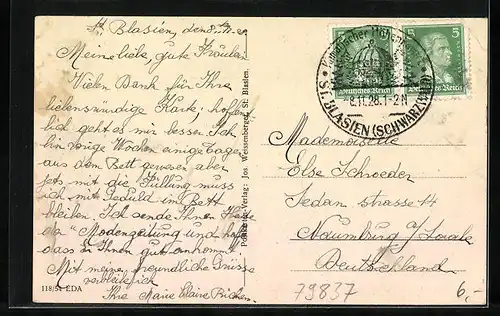 St. Blasien, den 8.11.28
Meine liebe, gute Fräulein
Vielen Dank für Ihre
liebenswürdige Karte; hoffen
lich geht es mir besser. Ich
bin vorige Wochen einige Tage
aus dem Bett gewesen aber
jets mit die Füllung muss
ich mit Geduld im Bett
bleiben. Ich sende Ihnen Heute
da "Modenzeitung und hoffe
dass er Ihnen gut ankommt.
Mit meine freundliche Grüsse
verbleibe ich
Ihre Marie Claire
118/51 EDA
Postkarten-Verlag: Jos. Weissenberger, St. Blasien.
Deutsches Reich
5 5
Deutsches Reich
ST. BLASIEN (SCHWARZWALD)
8.11.28.1-2N
Mademoiselle
Else Schroeder
Sedan strasse 14
Naumburg a/ Saale
Deutschland
79837
6,-